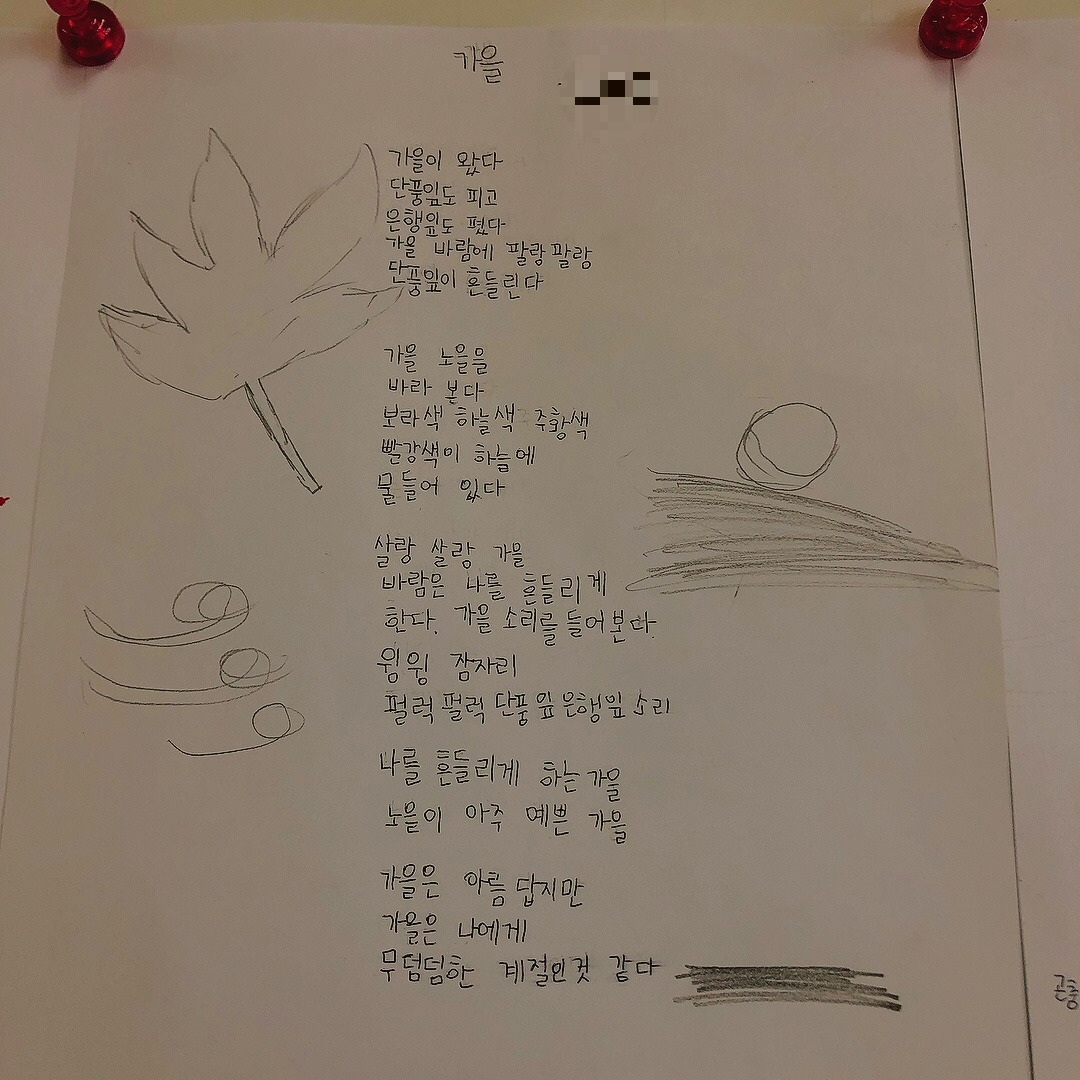 가을
가을이 왔다
단풍잎도 피고
은행잎도 폈다
가을 바람에 팔랑팔랑
단풍잎이 흔들린다
가을 노을을
바라 본다
보라색 하늘색 주황색
빨강색이 하늘에
물들어 있다
살랑 살랑 가을
바람은 나를 흔들리게
한다. 가을 소리를 들어본다.
윙윙 잠자리
펄럭펄럭 단풍잎 은행잎 소리
나를 흔들리게 하는 가을
노을이 아주 예쁜 가을
가을은 아름답지만
가을은 나에게
무덤덤한 계절인것 같다
곤충